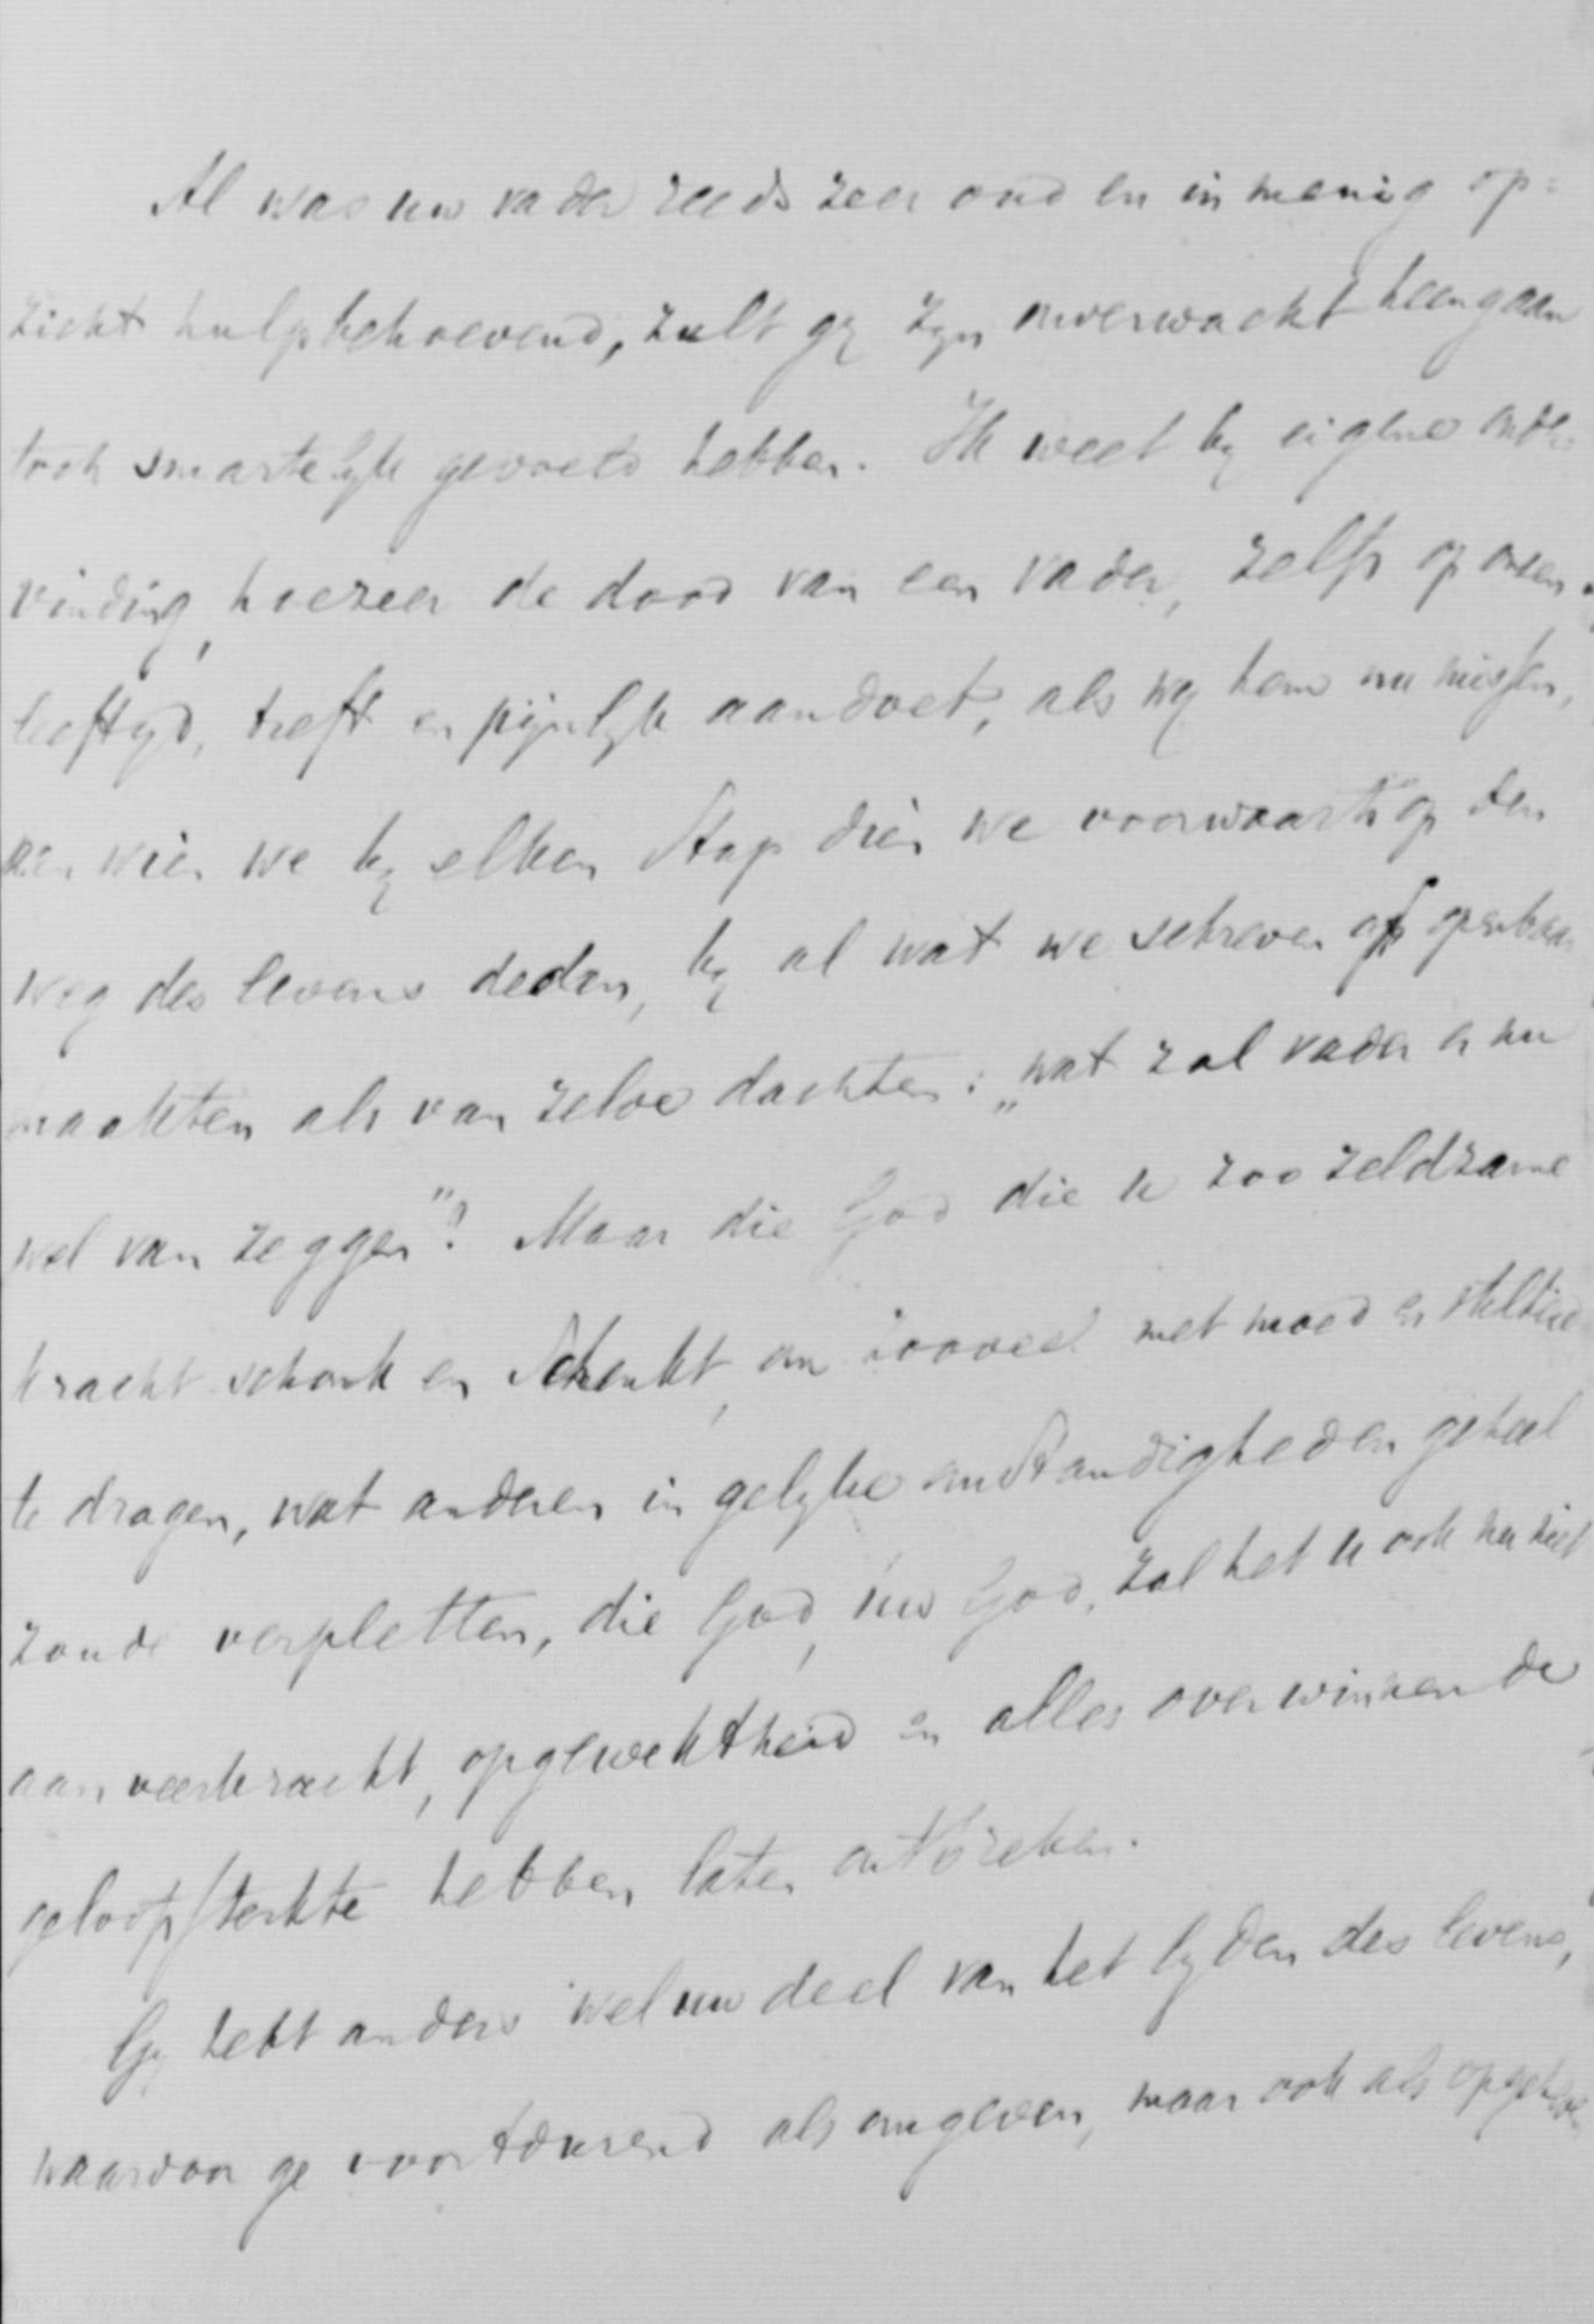 Al was uw vader reeds zeer oud en in menig op=
zicht hulpbehoevend, zult gij zijn onverwacht heengaan
toch smartelijk gevoeld hebben. Ik weet bij eigene onder=
vinding, hoezeer de dood van een vader, zelfs op onzen
leeftijd, treft en pijnlijk aandoet, als wij hem nu missen,
aan wien we bij elken stap dien we voorwaarts op den
weg des levens deden, bij al wat we schreven of openbaar
maakten als van zelve dachten: „wat zal vader er nu
wel van zeggen"? Maar die God die u zoo zeldzame
kracht schonk en schenkt, om zooveel met moed en stille
te dragen, wat anderen in gelijke omstandigheden geheel
zoude verpletten, die God, uw God, zal het u ook nu niet
aan veerkracht, opgewektheid en alles overwinnende
geloofssterkte hebben laten ontbreken.
Gij hebt anders wel uw deel van het lijden des levens,
waardoor ge voortdurend als omgeven, maar ook als